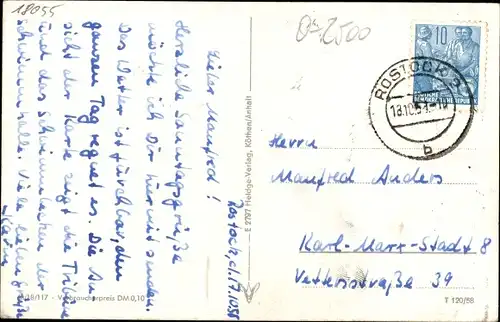 18055
Ok. 2500
10
ROSTOCK 2
18.10.58
b
Rostock, d. 17.10.58
Lieber Manfred!
Herzliche Sonntagsgrüße
möchte ich Dir hiermit senden.
Das Wetter ist furchtbar, den
ganzen Tag regnet es. Die An-
sicht der Karte zeigt die Tribüne
und das Schwimmbecken der
Schwimmhalle. Viele liebe Grüße
Karin
Herrn
Manfred Anders
Karl-Marx-Stadt 8
Vettersstraße 39
E 2797 Heldge-Verlag, Köthen/Anhalt
/117 - Verbraucherpreis DM 0,10
T 120/58